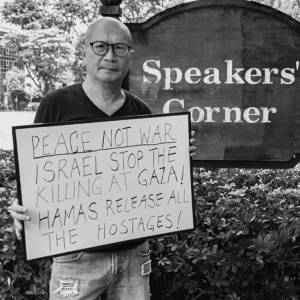 Speakers'
Corner
PEACE NOT WAR
ISRAEL STOP THE
KILLING AT GAZA!
HAMAS RELEASE ALL
THE HOSTAGES!